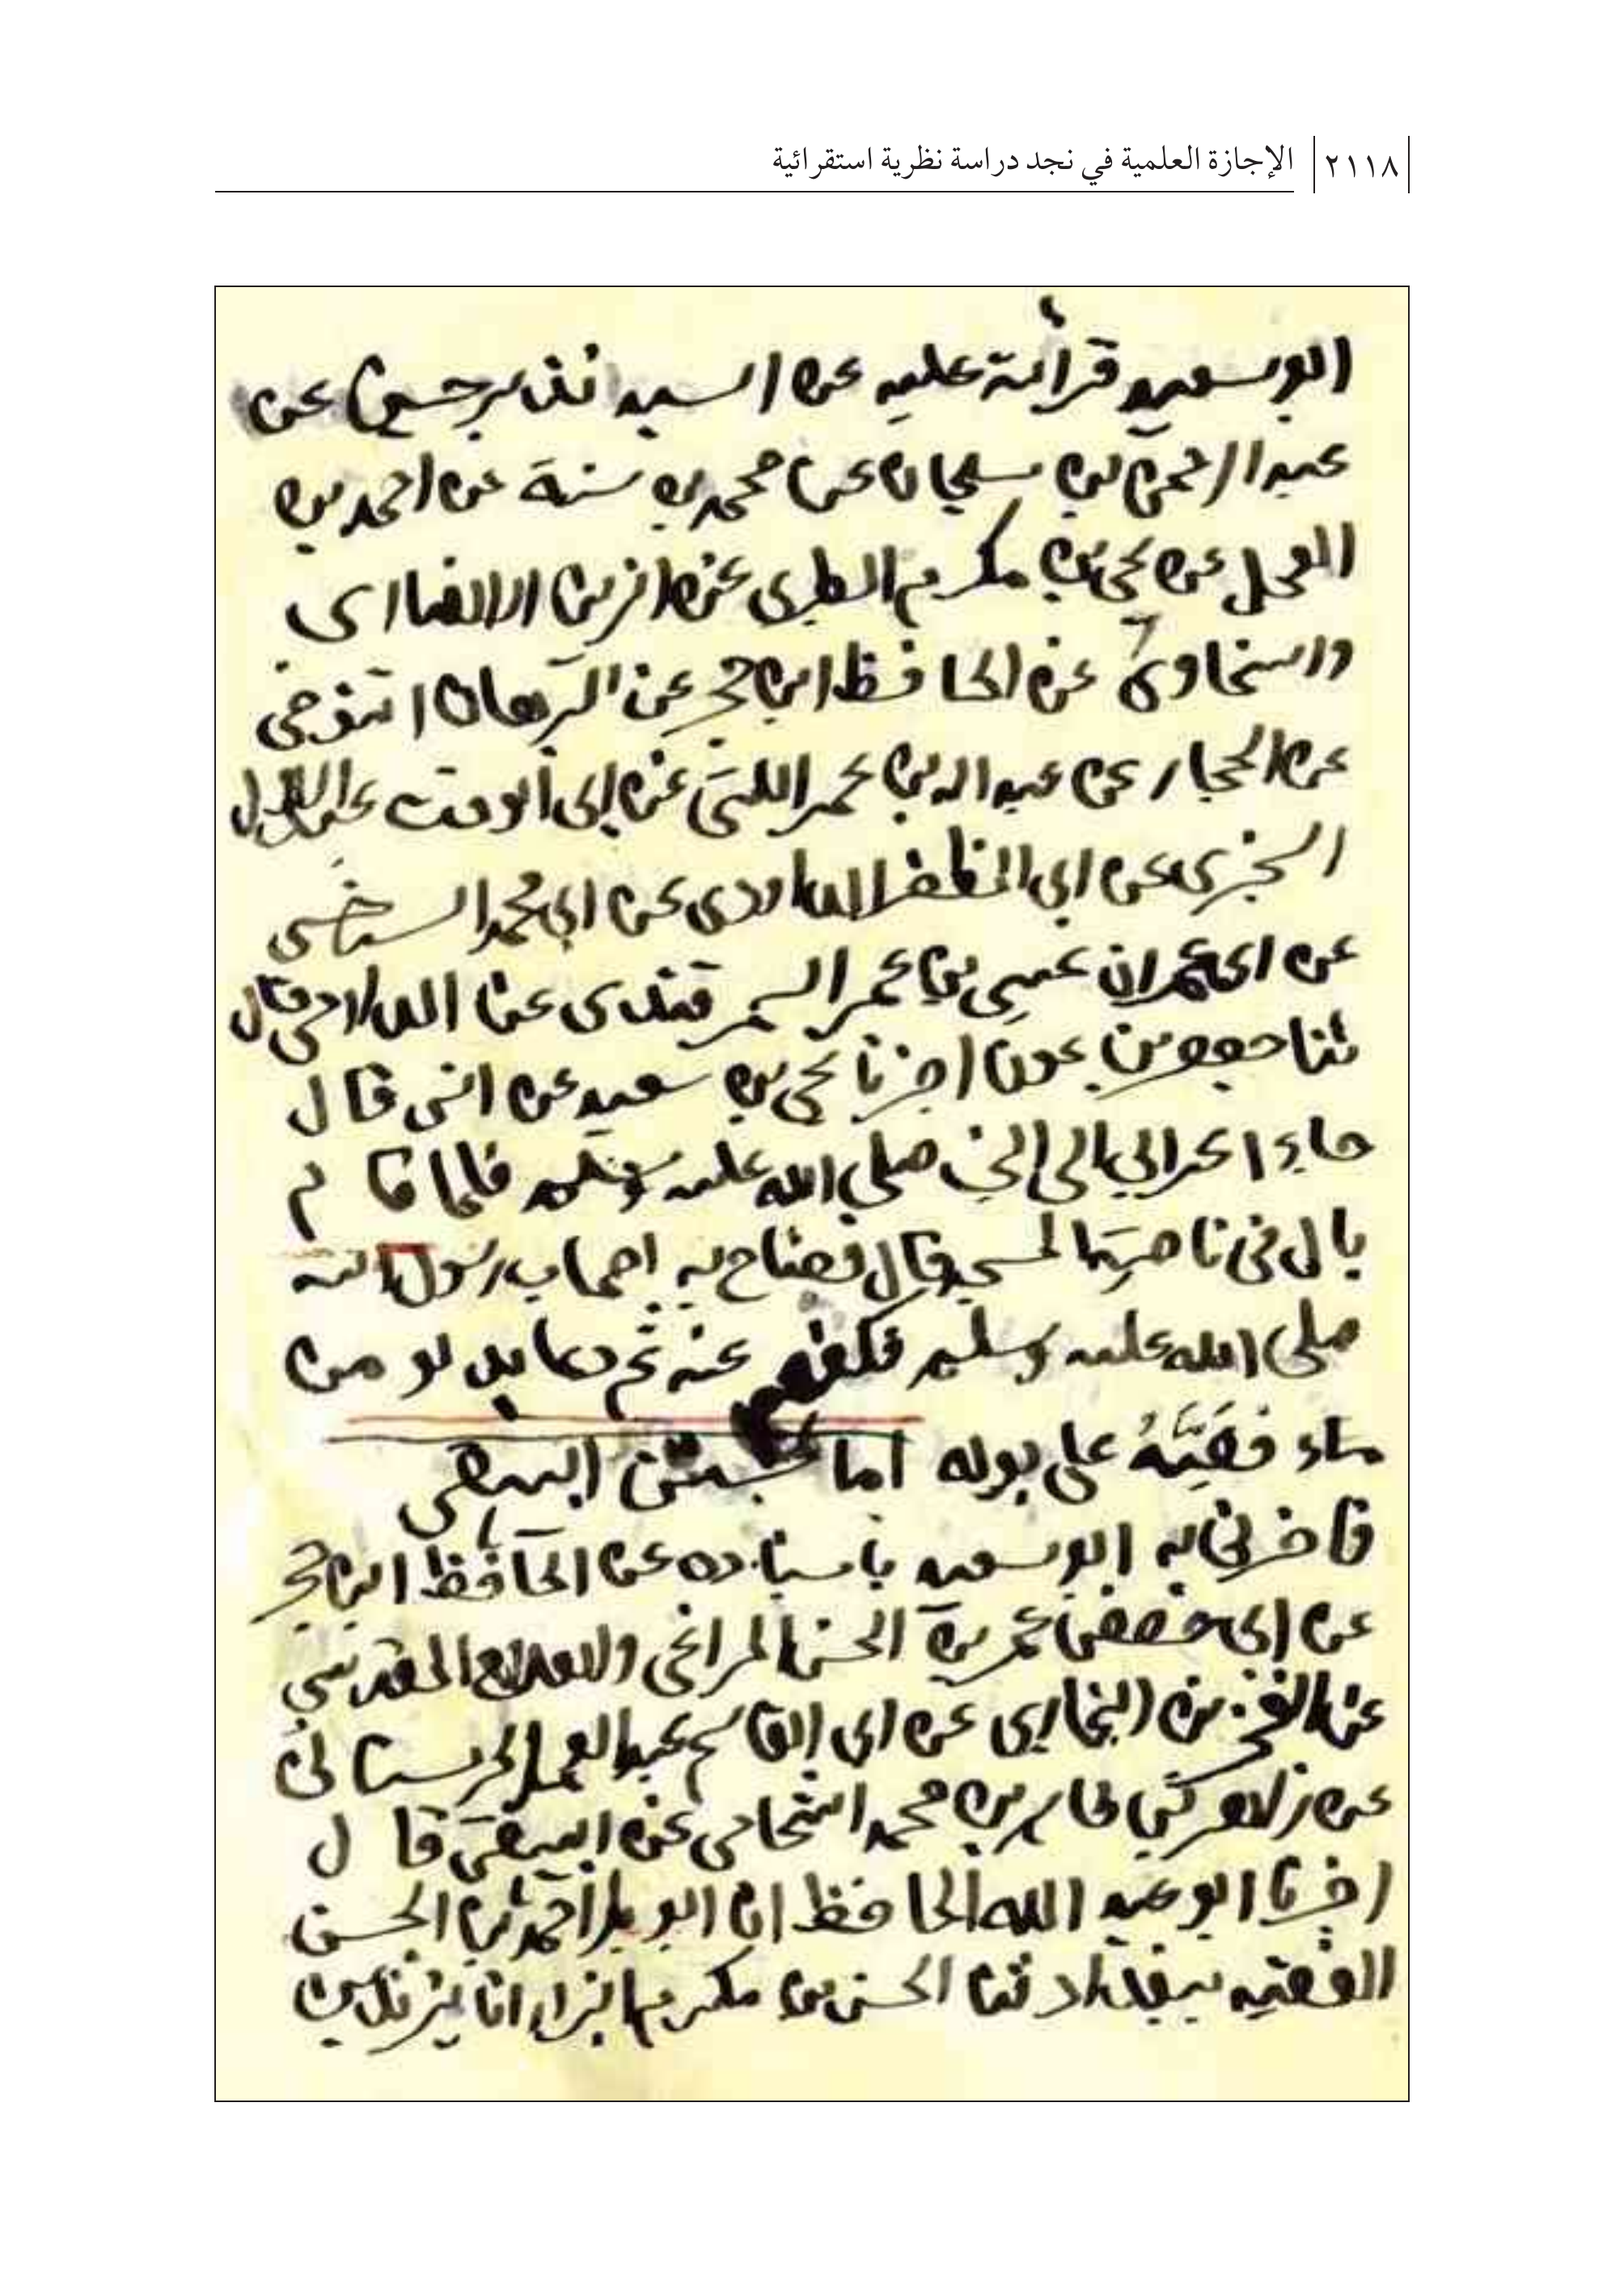 ٢١١٨ الإجازة العلمية في نجد دراسة نظرية استقرائية
ابو سعيد قرأئة عليه عن السيد نذير حسين عن
عبد الرحمن بن سليمان عن محمد بن سنة عن احمد بن
العجل عن يحي بن مكرم الطبري عن الزين الانصاري
والسخاوي عن الحافظ ابن حجر عن البرهان التنوخي
عن الحجار عن عبد الله بن عمر اللتي عن ابي ألوقت عبد الاول
السجزي عن ابي المظفر الداودي عن ابي محمد السرخسي
عن ابي عمران عيسى بن عمر السمرقندي عن الدارمي قال
ثنا جعفر بن عون اخبرنا يحي بن سعيد عن انس قال
جاء اعرابي الى النبي صلى الله عليه وسلم فلما قام
بال في ناحية المسجد قال فصاح به اصحاب رسول الله
صلى الله عليه وسلم فكفهم عنه ثم دعا بدلو من
ماء فصبه على بوله اما سنن البيهقي
فاخبرني به ابو سعيد باسناده عن الحافظ ابن حجر
عن ابي حفص عمر بن الحسن المراغي والصلاح المقدسي
عن الفخر بن البخاري عن ابي القاسم عبد الصمد الحرستاني
عن زاهر بن طاهر بن محمد الشحامي عن البيهقي قال
اخبرنا ابو عبد الله الحافظ انا ابو بكر احمد بن الحسن
الفقيه ببغداد ثنا الحسن بن مكرم البزار انا يزيد بن